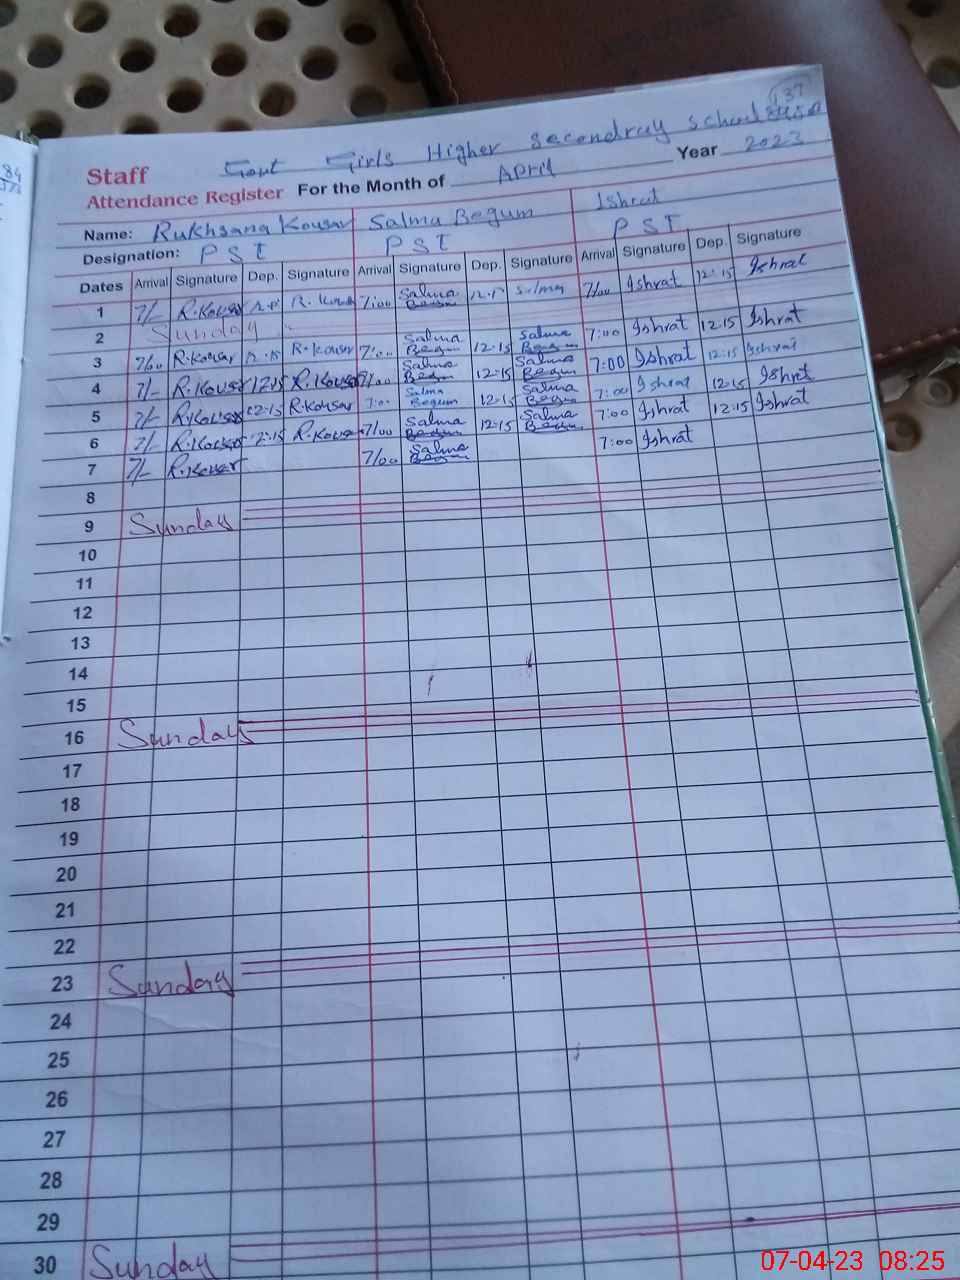 37
Govt Girls Higher Secondray School
Staff
Attendance Register For the Month of April Year 2023
Name: Rukhsana Kousar Salma Begum Ishrat
Designation: P S T P S T P S T
Dates Arrival Signature Dep. Signature Arrival Signature Dep. Signature Arrival Signature Dep. Signature
1 7/- R.Kousar R.Kousar 7:00 Salma Begum Salma 7/00 Ishrat 12:15 Ishrat
2 Sunday
3 7/00 R.Kousar 12:15 R.Kousar 7:00 Salma Begum 12:15 Salma Begum 7:00 Ishrat 12:15 Ishrat
4 7/- R.Kousar 12:15 R.Kousar 7/00 Salma Begum 12:15 Salma Begum 7:00 Ishrat 12:15 Ishrat
5 7/- R.Kousar 12:15 R.Kousar 7:00 Salma Begum 12:15 Salma Begum 7:00 Ishrat 12:15 Ishrat
6 7/- R.Kousar 12:15 R.Kousar 7/00 Salma Begum 12:15 Salma Begum 7:00 Ishrat 12:15 Ishrat
7 7/- R.Kousar 7/00 Salma Begum 7:00 Ishrat
8
9 Sunday
10
11
12
13
14
15
16 Sunday
17
18
19
20
21
22
23 Sunday
24
25
26
27
28
29
30 Sunday
07-04-23 08:25